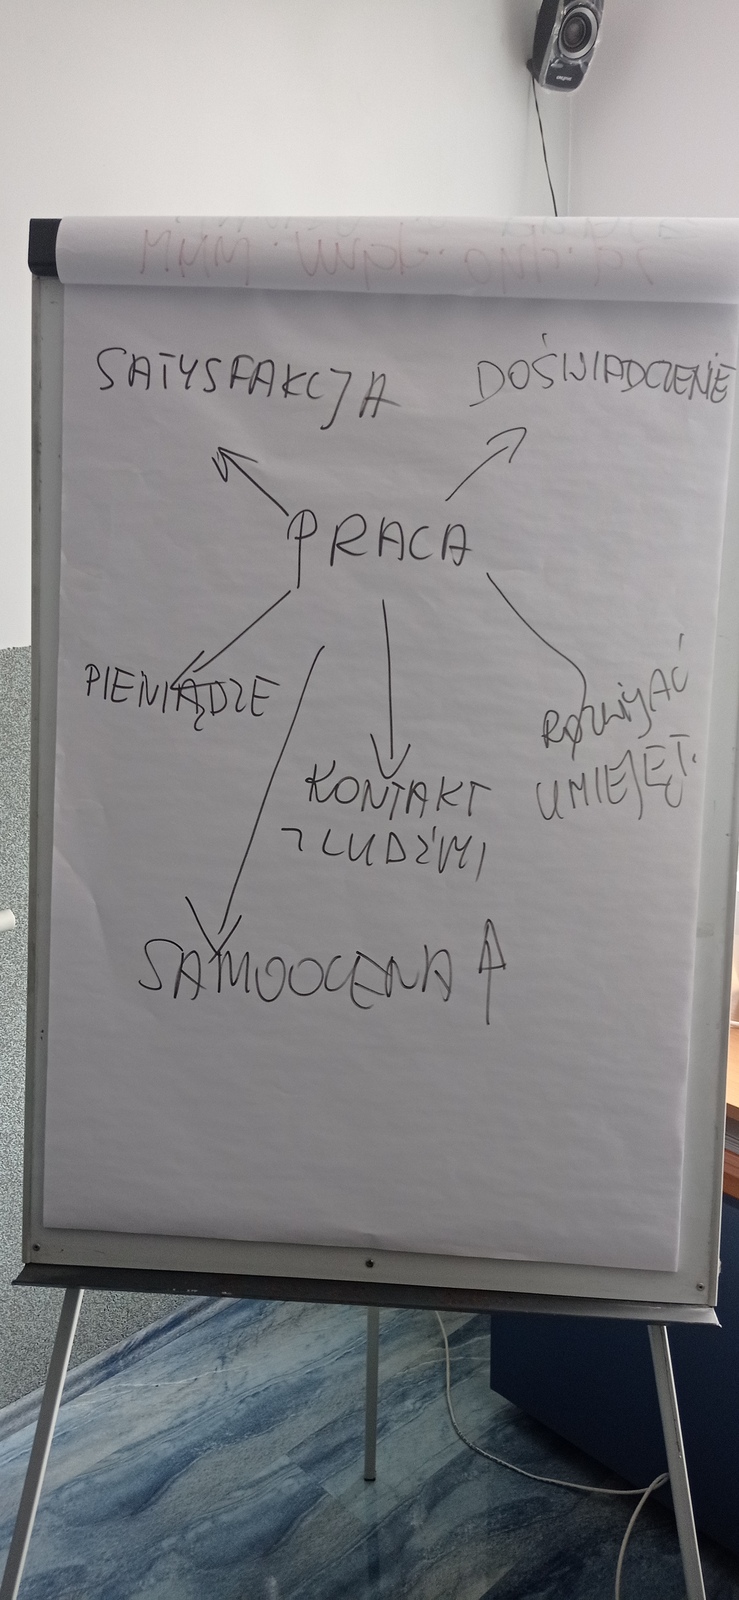 SATYSFAKCJA
DOŚWIADCZENIE
PRACA
PIENIĄDZE
ROZWIJAĆ
UMIEJĘT.
KONTAKT
Z LUDŹMI
SAMOOCENA ↑